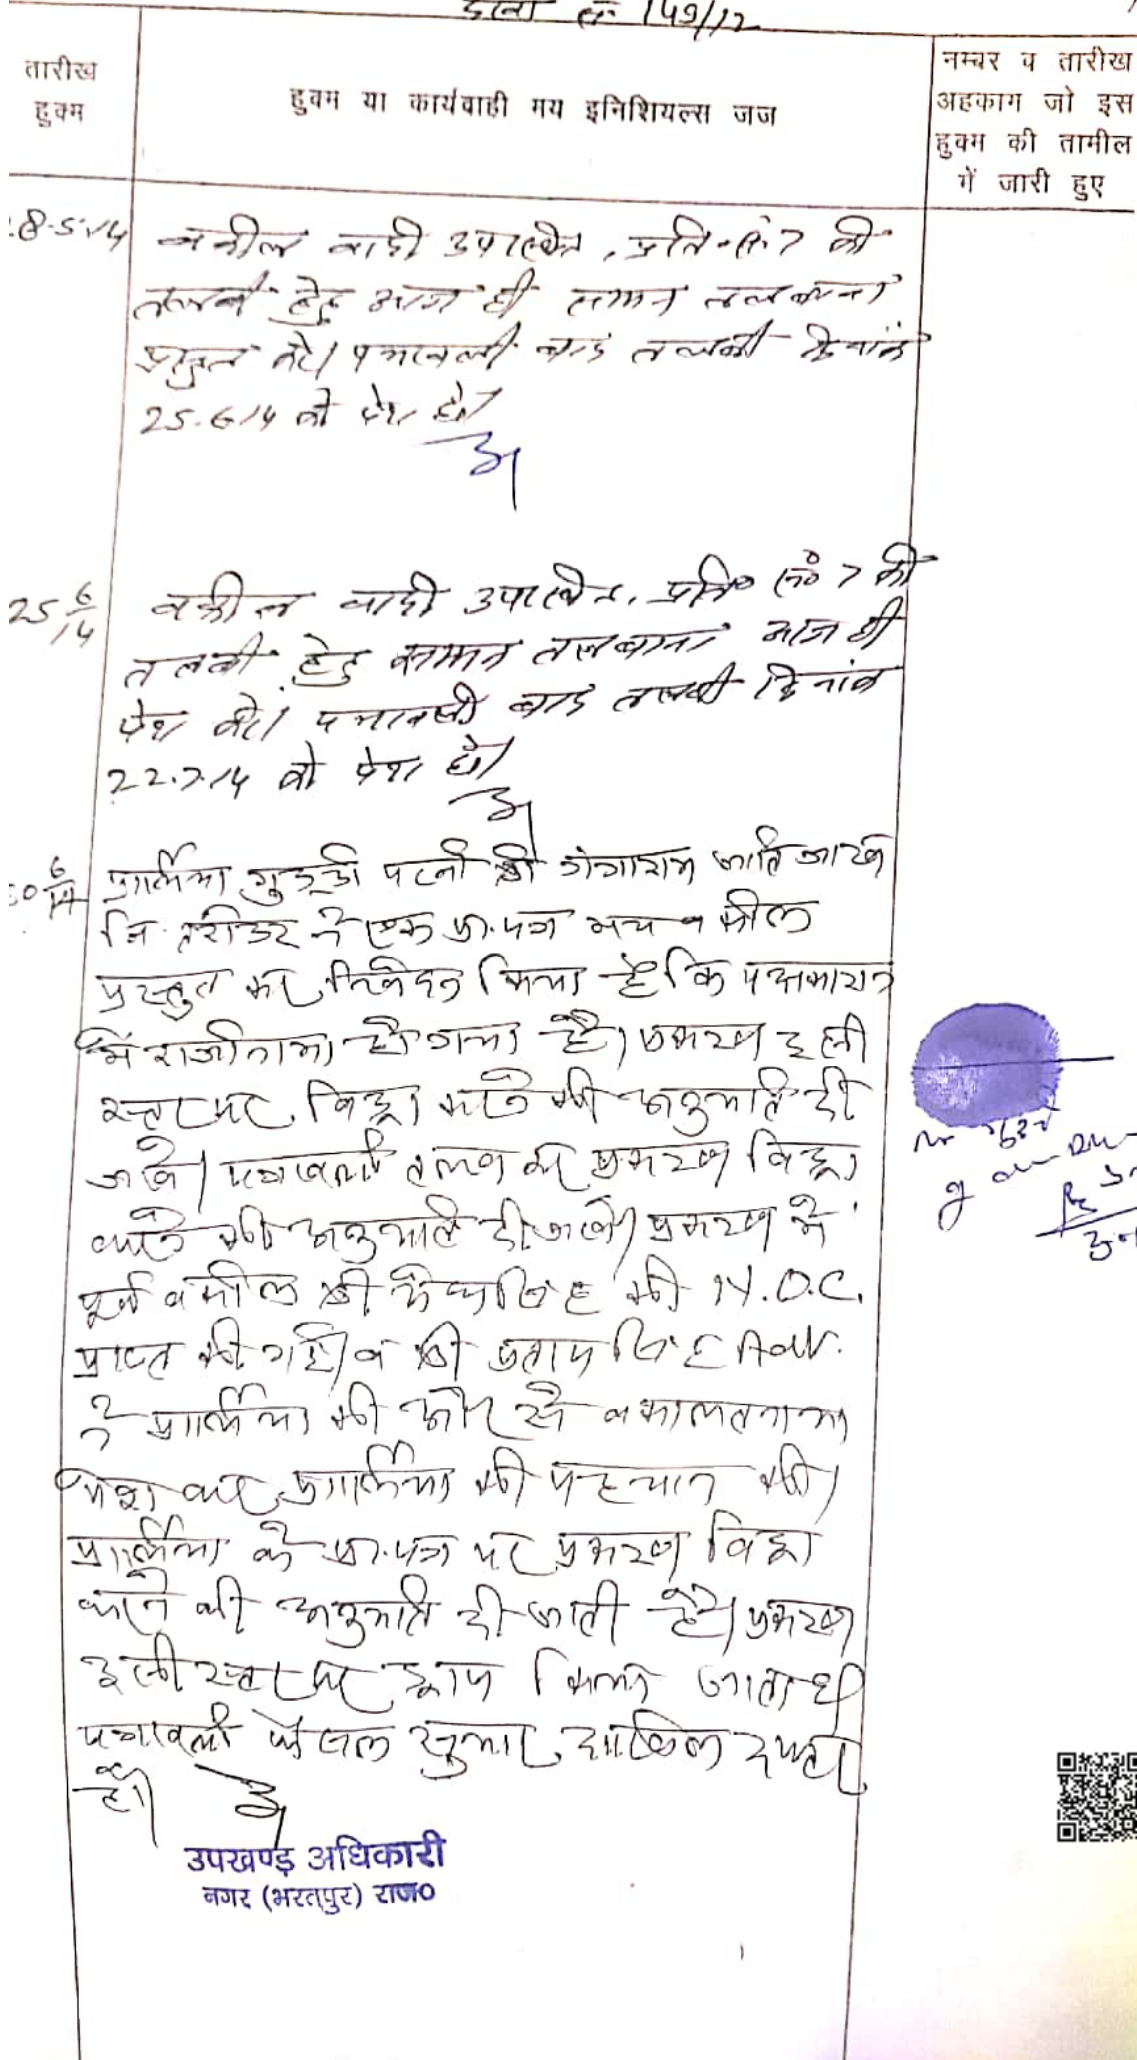 149/12
तारीख
हुक्म
हुक्म या कार्यवाही मय इनिशियल्स जज
नम्बर व तारीख
अहकाम जो इस
हुक्म की तामील
में जारी हुए
8.5.14
वकील वादी उपस्थित, प्रति. सं. 7 की
तलबी हेतु आज ही सम्मन तलबाना
प्रस्तुत करे। पत्रावली बाद तलबी दिनांक
25.6.14 को पेश हो।
25 6/14
वकील वादी उपस्थित, प्रति० सं० 7 की
तलबी हेतु सम्मन तलबाना आज ही
पेश करे। पत्रावली बाद तलबी दिनांक
22.7.14 को पेश हो।
6/14
प्रार्थिया गुड्डी पत्नी श्री गंगाराम जाति जाटव
नि. ने एक प्रा.पत्र मय वकील
प्रस्तुत कर निवेदन किया है कि पक्षकारान
में राजीनामा हो गया है। प्रकरण इसी
स्तर पर विड्रा करने की अनुमति दी
जावे। पत्रावली तलब कर प्रकरण विड्रा
करने की अनुमति दी जावे। प्रकरण में
पूर्व वकील श्री की N.O.C.
प्राप्त की गई। व श्री प्रताप सिंह Adv.
ने प्रार्थिया की ओर से वकालतनामा
पेश कर प्रार्थिया की पहचान की।
प्रार्थिया के प्रा.पत्र पर प्रकरण विड्रा
करने की अनुमति दी जाती है। प्रकरण
इसी स्तर पर ड्राप किया जाता है।
पत्रावली फैसल शुमार दाखिल दफ्तर
हो।
उपखण्ड अधिकारी
नगर (भरतपुर) राज०